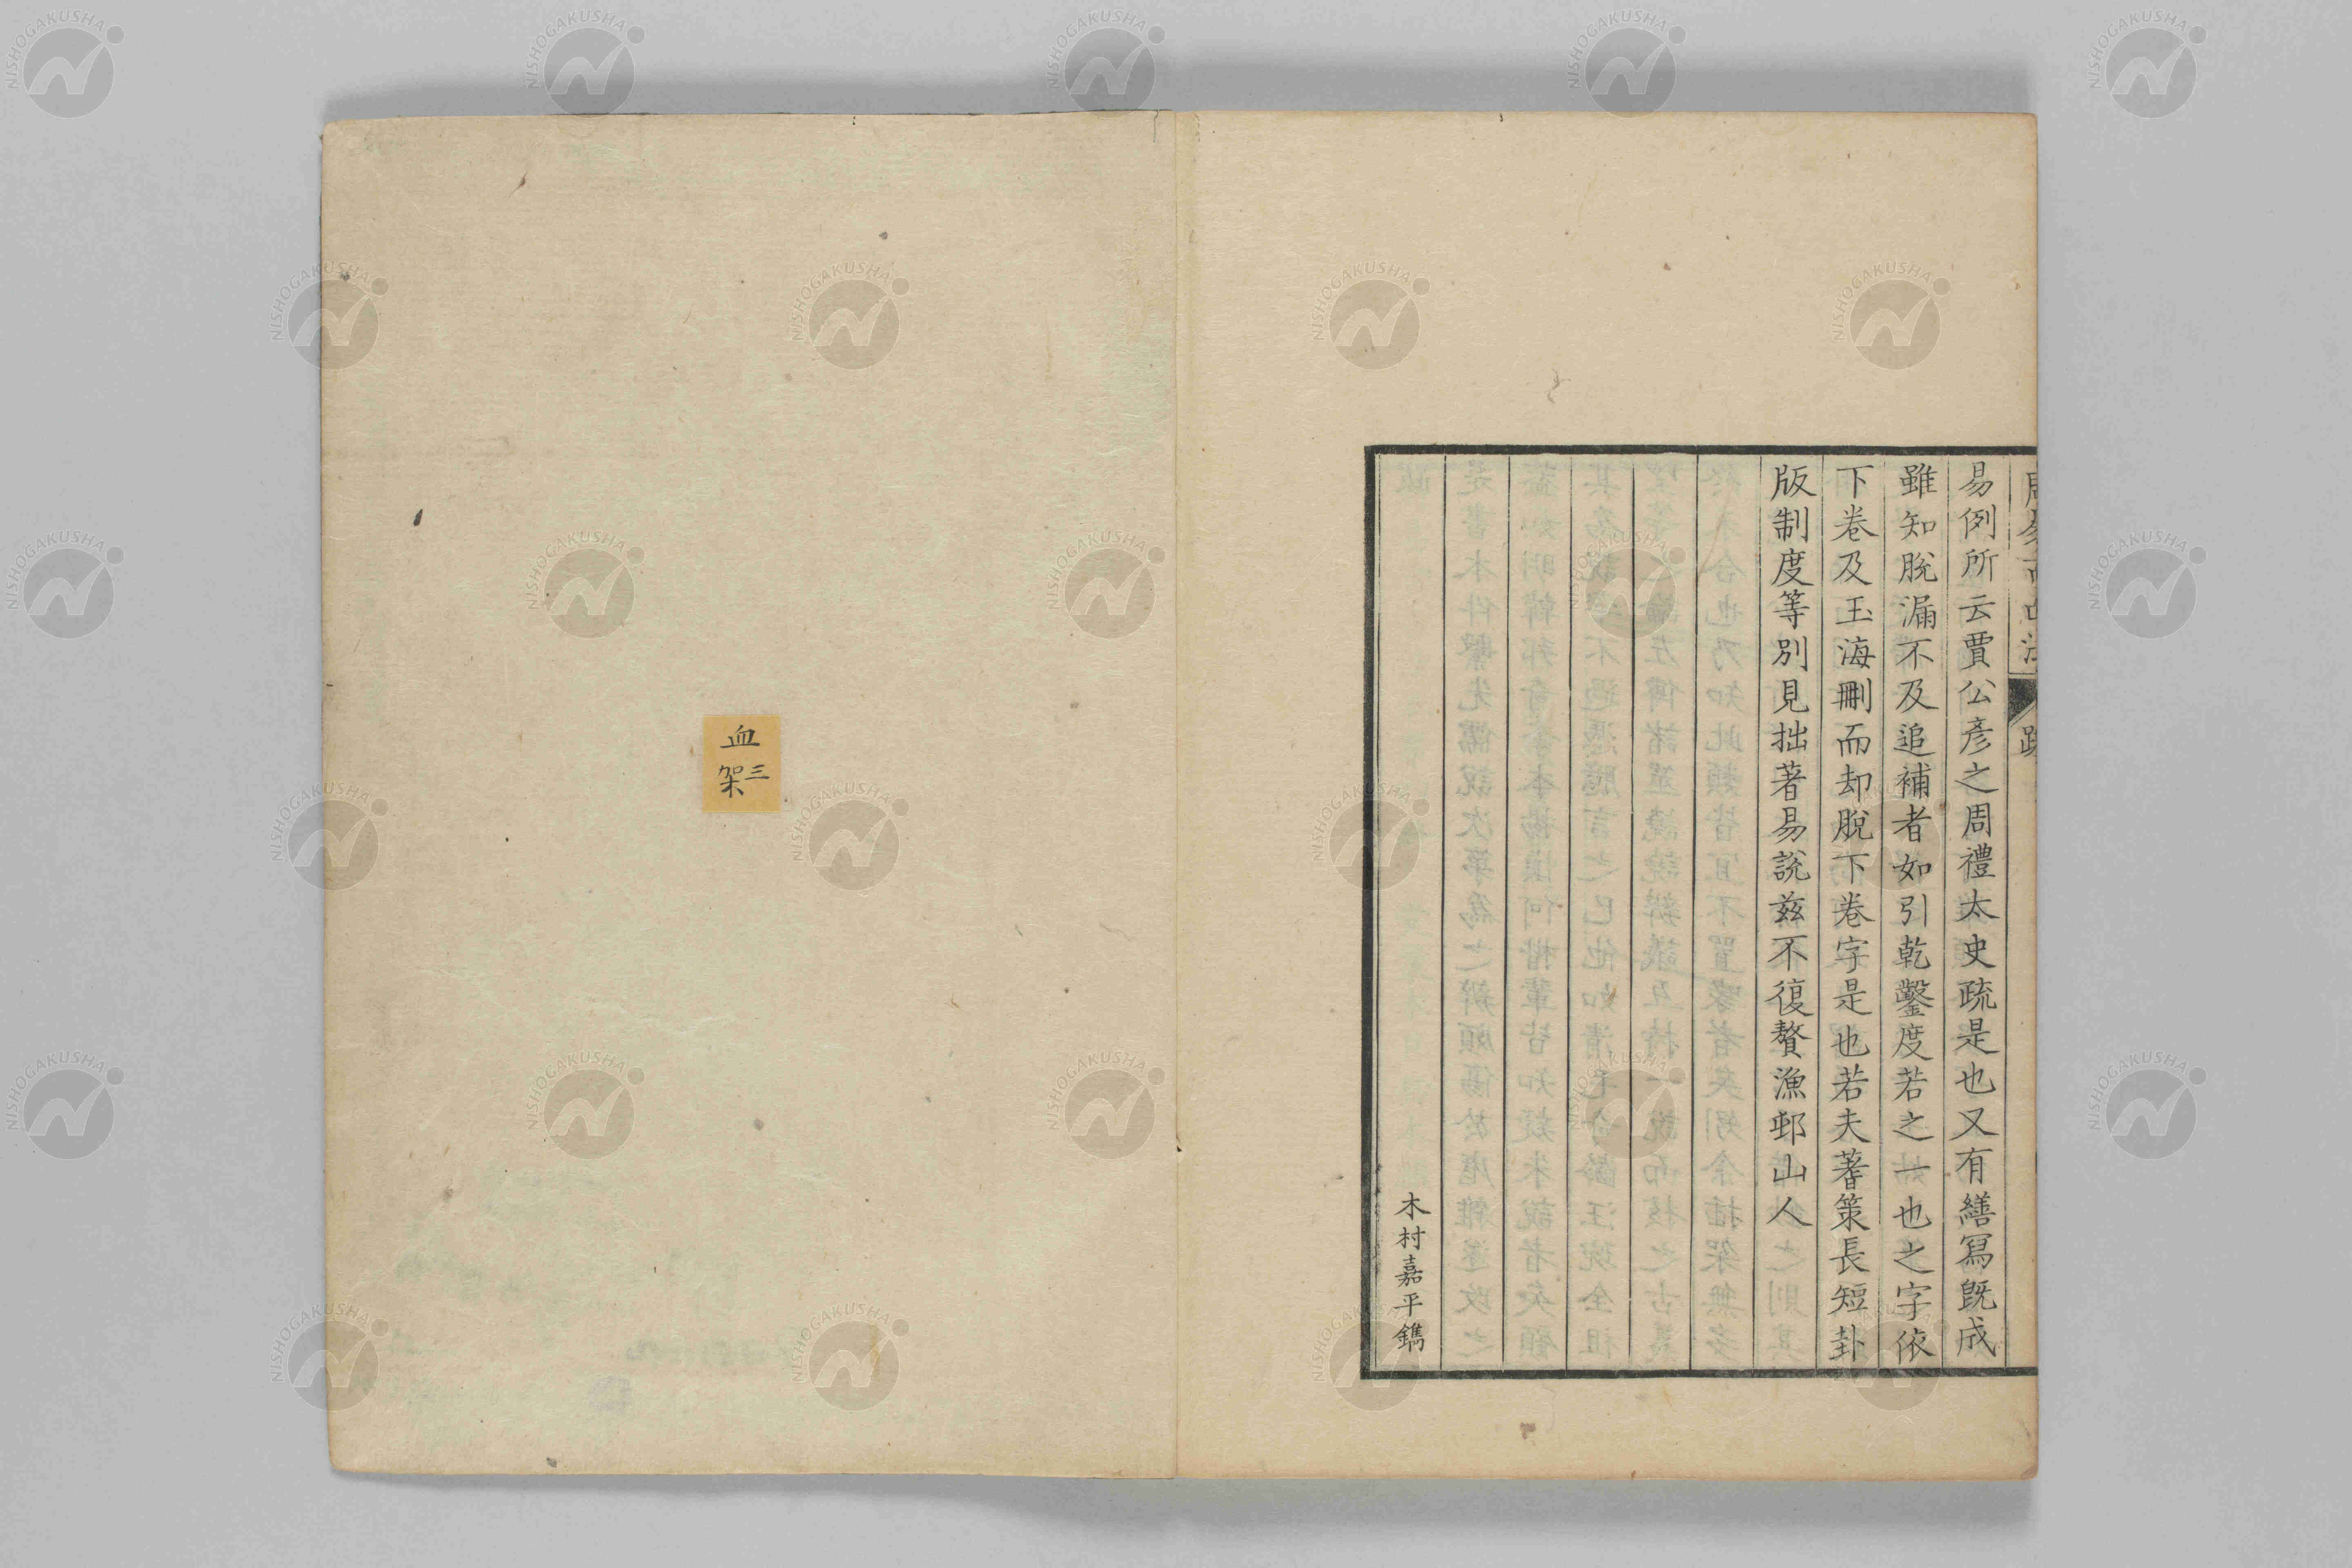 易例所云賈公彥之周禮太史疏是也又有繕寫旣成
雖知脫漏不及追補者如引乾鑿度若之一也之字依
下卷及玉海刪而却脫下卷字是也若夫蓍策長短卦
版制度等別見拙著易說茲不復贅漁邨山人
木村嘉平鐫
血
三架
NISHOGAKUSHA